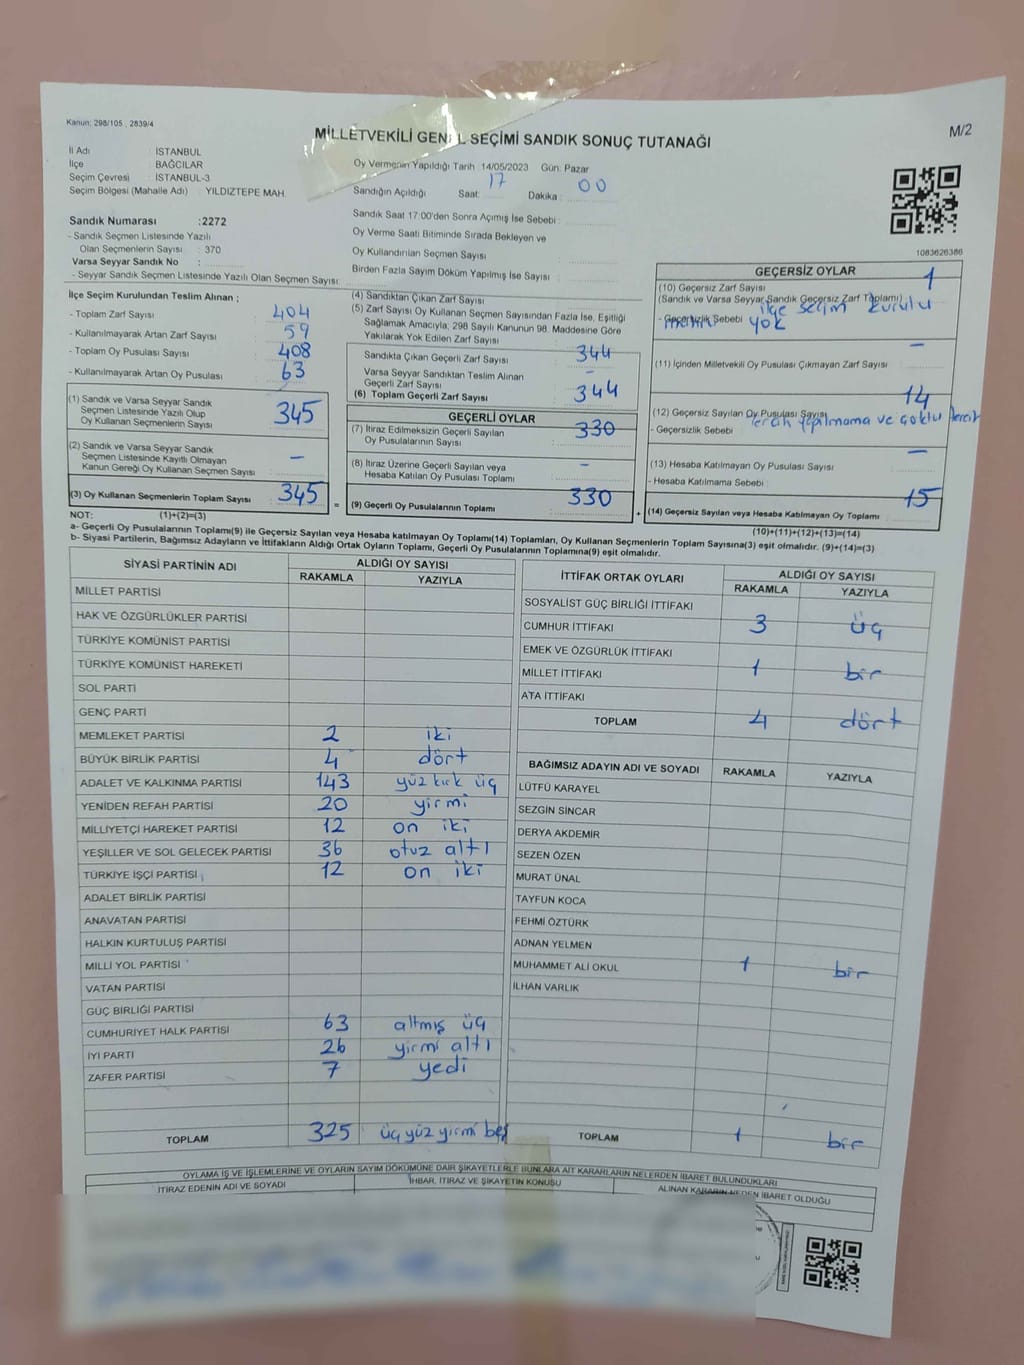 Kanun: 298/105 , 2839/4
MİLLETVEKİLİ GENEL SEÇİMİ SANDIK SONUÇ TUTANAĞI
M/2
İl Adı : İSTANBUL
İlçe : BAĞCILAR
Seçim Çevresi : İSTANBUL-3
Seçim Bölgesi (Mahalle Adı) : YILDIZTEPE MAH.
Oy Vermenin Yapıldığı Tarih :14/05/2023 Gün: Pazar
Sandığın Açıldığı Saat: 17 Dakika : 00
Sandık Saat 17:00'den Sonra Açımış İse Sebebi :
Oy Verme Saati Bitiminde Sırada Bekleyen ve
Oy Kullandırılan Seçmen Sayısı
Birden Fazla Sayım Döküm Yapılmış İse Sayısı
1083626386
Sandık Numarası :2272
- Sandık Seçmen Listesinde Yazılı
Olan Seçmenlerin Sayısı : 370
Varsa Seyyar Sandık No :
- Seyyar Sandık Seçmen Listesinde Yazılı Olan Seçmen Sayısı :
İlçe Seçim Kurulundan Teslim Alınan ;
- Toplam Zarf Sayısı : 404
- Kullanılmayarak Artan Zarf Sayısı : 59
- Toplam Oy Pusulası Sayısı : 408
- Kullanılmayarak Artan Oy Pusulası : 63
(1) Sandık ve Varsa Seyyar Sandık
Seçmen Listesinde Yazılı Olup
Oy Kullanan Seçmenlerin Sayısı : 345
(2) Sandık ve Varsa Seyyar Sandık
Seçmen Listesinde Kayıtlı Olmayan
Kanun Gereği Oy Kullanan Seçmen Sayısı : –
(3) Oy Kullanan Seçmenlerin Toplam Sayısı : 345
(4) Sandıktan Çıkan Zarf Sayısı
(5) Zarf Sayısı Oy Kullanan Seçmen Sayısından Fazla İse, Eşitliği
Sağlamak Amacıyla; 298 Sayılı Kanunun 98. Maddesine Göre
Yakılarak Yok Edilen Zarf Sayısı :
Sandıkta Çıkan Geçerli Zarf Sayısı : 344
Varsa Seyyar Sandıktan Teslim Alınan
Geçerli Zarf Sayısı –
(6) Toplam Geçerli Zarf Sayısı : 344
GEÇERLİ OYLAR
(7) İtiraz Edilmeksizin Geçerli Sayılan
Oy Pusulalarının Sayısı : 330
(8) İtiraz Üzerine Geçerli Sayılan veya
Hesaba Katılan Oy Pusulası Toplamı : –
= (9) Geçerli Oy Pusulalarının Toplamı : 330
GEÇERSİZ OYLAR
(10) Geçersiz Zarf Sayısı 1
(Sandık ve Varsa Seyyar Sandık Geçersiz Zarf Toplamı)
- Geçersizlik Sebebi ilçe seçim kurulu
yok
(11) İçinden Milletvekili Oy Pusulası Çıkmayan Zarf Sayısı –
(12) Geçersiz Sayılan Oy Pusulası Sayısı 14
- Geçersizlik Sebebi : Tercih yapılmama ve çoklu tercih
(13) Hesaba Katılmayan Oy Pusulası Sayısı –
- Hesaba Katılmama Sebebi :
+ (14) Geçersiz Sayılan veya Hesaba Katılmayan Oy Toplamı : 15
NOT: (1)+(2)=(3)
(10)+(11)+(12)+(13)=(14)
a- Geçerli Oy Pusulalarının Toplamı(9) ile Geçersiz Sayılan veya Hesaba katılmayan Oy Toplamı(14) Toplamları, Oy Kullanan Seçmenlerin Toplam Sayısına(3) eşit olmalıdır. (9)+(14)=(3)
b- Siyasi Partilerin, Bağımsız Adayların ve İttifakların Aldığı Ortak Oyların Toplamı, Geçerli Oy Pusulalarının Toplamına(9) eşit olmalıdır.
SİYASİ PARTİNİN ADI ALDIĞI OY SAYISI
RAKAMLA YAZIYLA
MİLLET PARTİSİ
HAK VE ÖZGÜRLÜKLER PARTİSİ
TÜRKİYE KOMÜNİST PARTİSİ
TÜRKİYE KOMÜNİST HAREKETİ
SOL PARTİ
GENÇ PARTİ
MEMLEKET PARTİSİ 2 iki
BÜYÜK BİRLİK PARTİSİ 4 dört
ADALET VE KALKINMA PARTİSİ 143 yüz kırk üç
YENİDEN REFAH PARTİSİ 20 yirmi
MİLLİYETÇİ HAREKET PARTİSİ 12 on iki
YEŞİLLER VE SOL GELECEK PARTİSİ 36 otuz altı
TÜRKİYE İŞÇİ PARTİSİ 12 on iki
ADALET BİRLİK PARTİSİ
ANAVATAN PARTİSİ
HALKIN KURTULUŞ PARTİSİ
MİLLİ YOL PARTİSİ
VATAN PARTİSİ
GÜÇ BİRLİĞİ PARTİSİ
CUMHURİYET HALK PARTİSİ 63 altmış üç
İYİ PARTİ 26 yirmi altı
ZAFER PARTİSİ 7 yedi
TOPLAM 325 üç yüz yirmi beş
İTTİFAK ORTAK OYLARI ALDIĞI OY SAYISI
RAKAMLA YAZIYLA
SOSYALİST GÜÇ BİRLİĞİ İTTİFAKI
CUMHUR İTTİFAKI 3 üç
EMEK VE ÖZGÜRLÜK İTTİFAKI
MİLLET İTTİFAKI 1 bir
ATA İTTİFAKI
TOPLAM 4 dört
BAĞIMSIZ ADAYIN ADI VE SOYADI RAKAMLA YAZIYLA
LÜTFÜ KARAYEL
SEZGİN SİNCAR
DERYA AKDEMİR
SEZEN ÖZEN
MURAT ÜNAL
TAYFUN KOCA
FEHMİ ÖZTÜRK
ADNAN YELMEN
MUHAMMET ALİ OKUL 1 bir
İLHAN VARLIK
TOPLAM 1 bir
OYLAMA İŞ VE İŞLEMLERİNE VE OYLARIN SAYIM DÖKÜMÜNE DAİR ŞİKAYETLERLE BUNLARA AİT KARARLARIN NELERDEN İBARET BULUNDUKLARI
İTİRAZ EDENİN ADI VE SOYADI İHBAR, İTİRAZ VE ŞİKAYETİN KONUSU ALINAN KARARIN NEDEN İBARET OLDUĞU